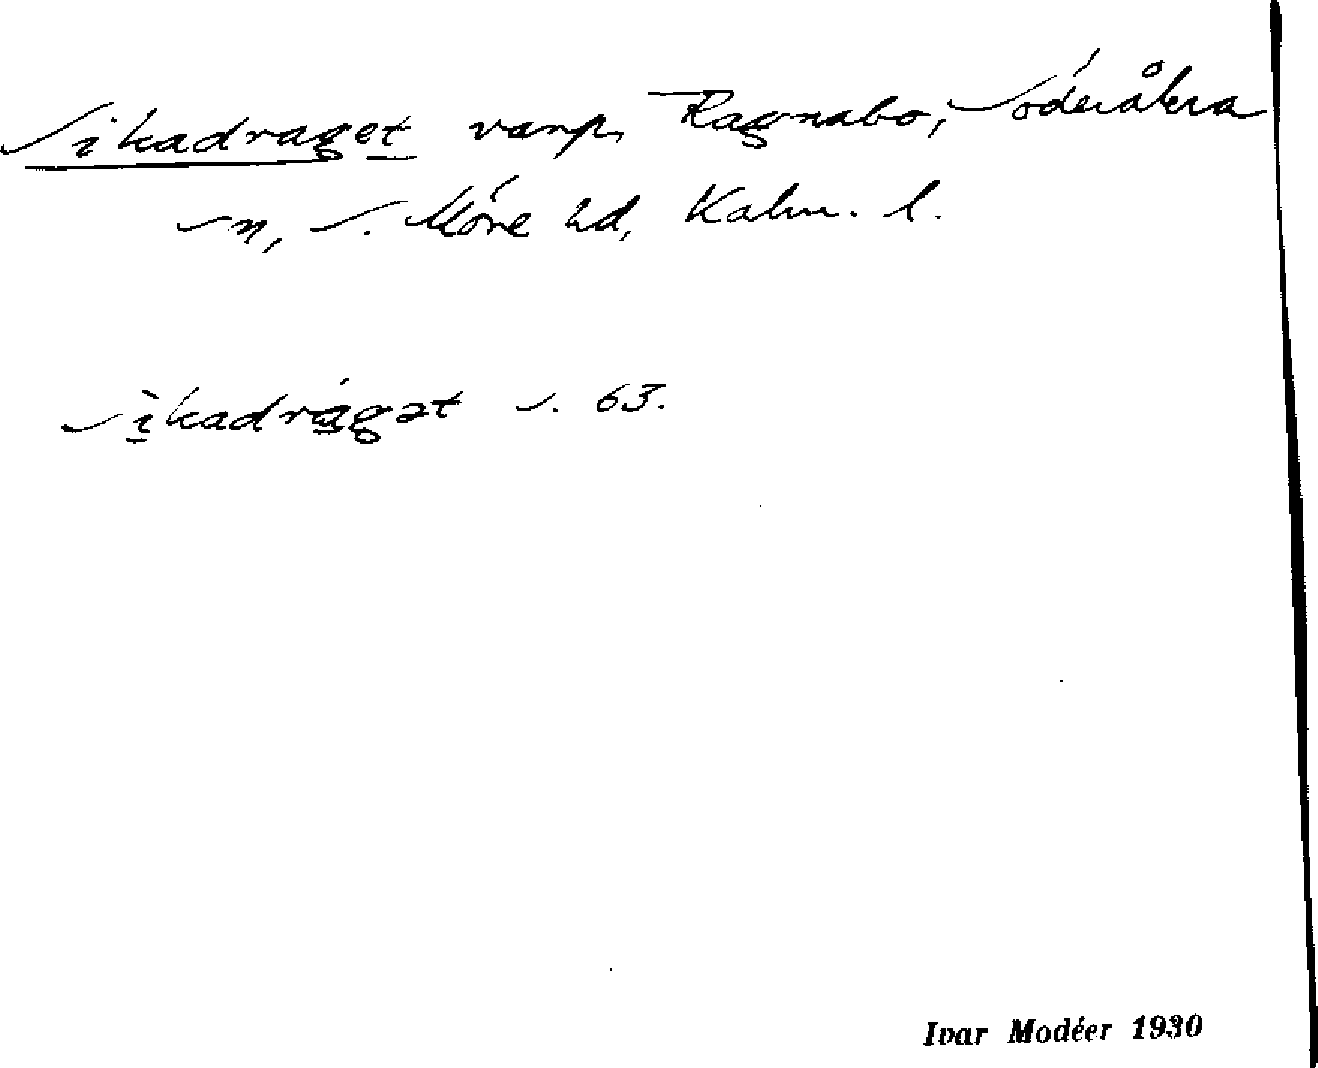 Sikadraget varp, Ragnabo, Söderåkra
sn, S. Möre hd, Kalm. l.
sikadrágət s. 63.
Ivar Modéer 1930